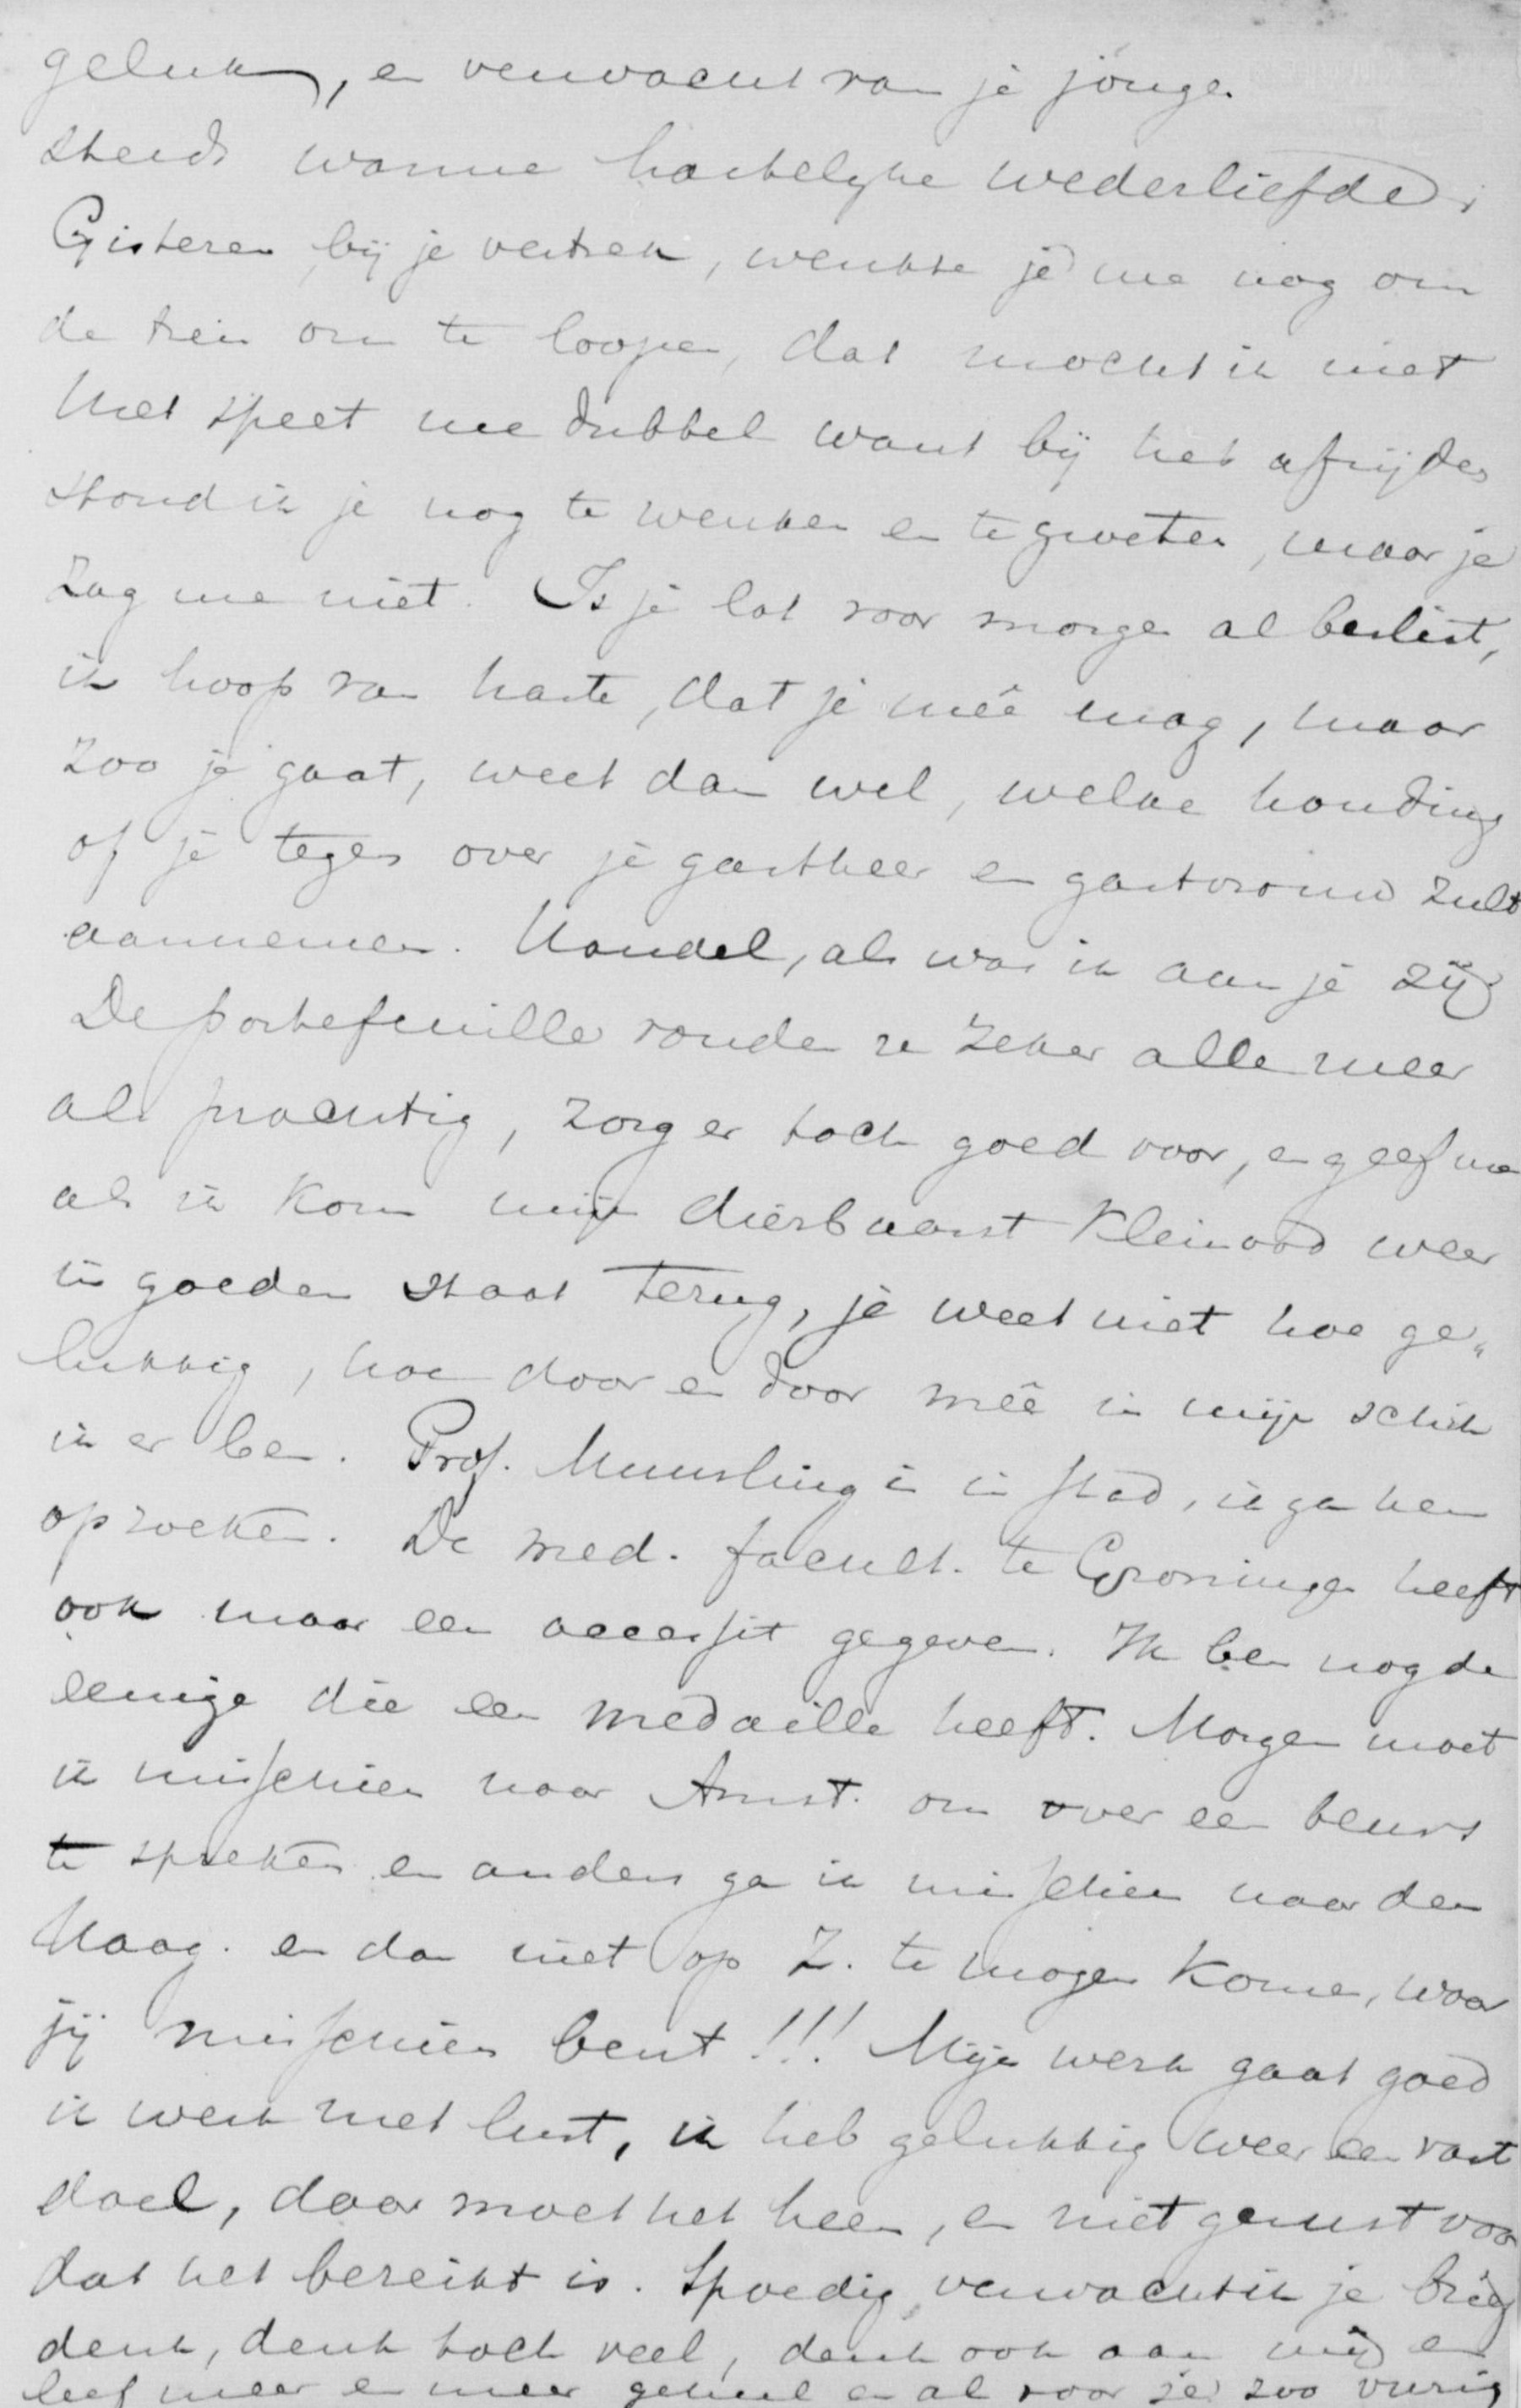 geluk, en verwacht van je jongen
steeds warme hartelyke wederliefde.
Gisteren bij je vertrek, wenkte je me nog om
de trein om te loopen, dat mocht ik niet
Het speet me dubbel want bij het afrijden
stond ik je nog te wenken en te groeten, maar je
zag me niet. Is je lot voor morgen al beslist,
ik hoop van harte, dat je meê mag, maar
zoo je gaat, weet dan wel, welke houding
of je tegen over je gastheer en gastvrouw zult
aannemen. Handel, als was ik aan je zij
De portefeuille vonden ze zeker alle meer
als prachtig, zorg er toch goed voor, en geef me
als ik kom mijn dierbaarst kleinood weer
in goeden staat terug, je weet niet hoe ge„
lukkig, hoe door en door meê in mijn schik
ik er ben. Prof. Muurling is in stad, ik ga hem
opzoeken. De med. facult. te Groningen heeft
ook maar een accessit gegeven. Ik ben nog de
eenige die een medaille heeft. Morgen moet
ik misschien naar Amst. om over een beurs
te spreken en anders ga ik misschien naar den
Haag. en dan niet op Z. te mogen komen, waar
jij misschien bent!!! Mijn werk gaat goed
ik werk met lust, ik heb gelukkig weer een vast
doel, daar moet het heen, en niet gerust voor
dat het bereikt is. Spoedig verwacht ik je brief
denk, denk toch veel, denk ook aan mij en
leef meer en meer geheel en al voor je zoo vurig